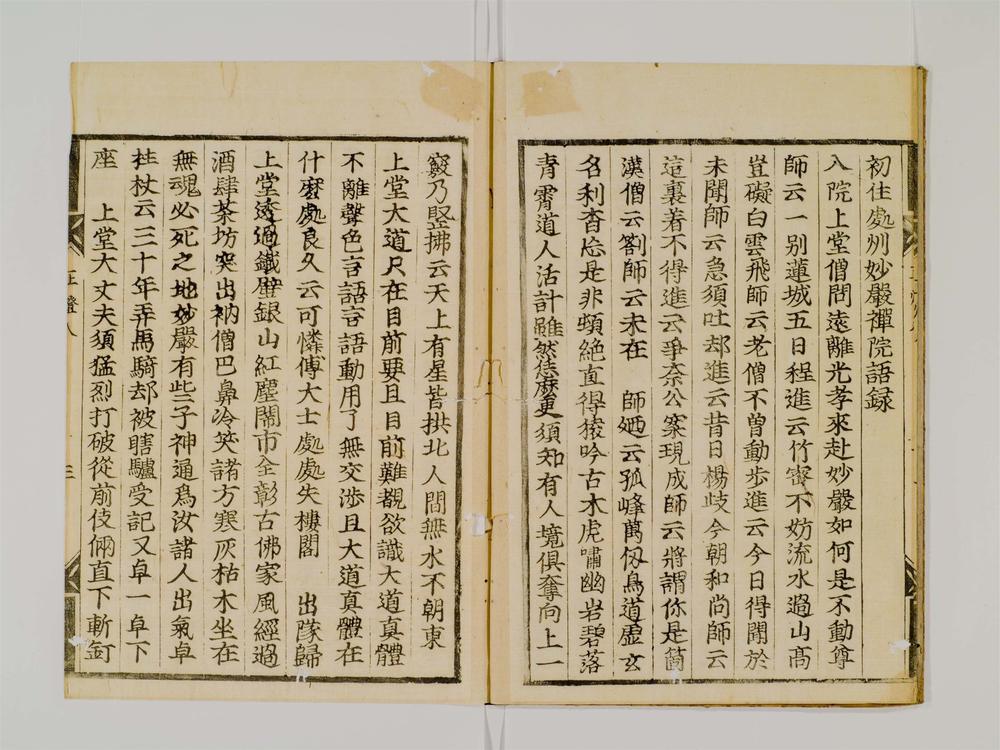 初住處州妙嚴禪院語錄
入院上堂僧問遠離光孝來赴妙嚴如何是不動尊
師云一別蓮城五日程進云竹密不妨流水過山高
豈礙白雲飛師云老僧不曾動步進云今日得聞於
未聞師云急須吐却進云昔日楊歧今朝和尚師云
這裏著不得進云爭奈公案現成師云將謂你是箇
漢僧云劄師云未在 師廼云孤峰萬仞鳥道虛玄
名利杳忘是非頓絕直得猿吟古木虎嘯幽岩碧落
青霄道人活計雖然恁麽更須知有人境俱奪向上一
竅乃竪拂云天上有星皆拱北人間無水不朝東
上堂大道只在目前要且目前難覩欲識大道真體
不離聲色言語言語動用了無交涉且大道真體在
什麽處良久云可憐傅大士處處失樓閣 出隊歸
上堂透過鐵壁銀山紅塵鬧市全彰古佛家風經過
酒肆茶坊突出衲僧巴鼻冷笑諸方寒灰枯木坐在
無魂必死之地妙嚴有些子神通爲汝諸人出氣卓
拄杖云三十年弄馬騎却被瞎驢受記又卓一卓下
座 上堂大丈夫須猛烈打破從前伎倆直下斬釘
三